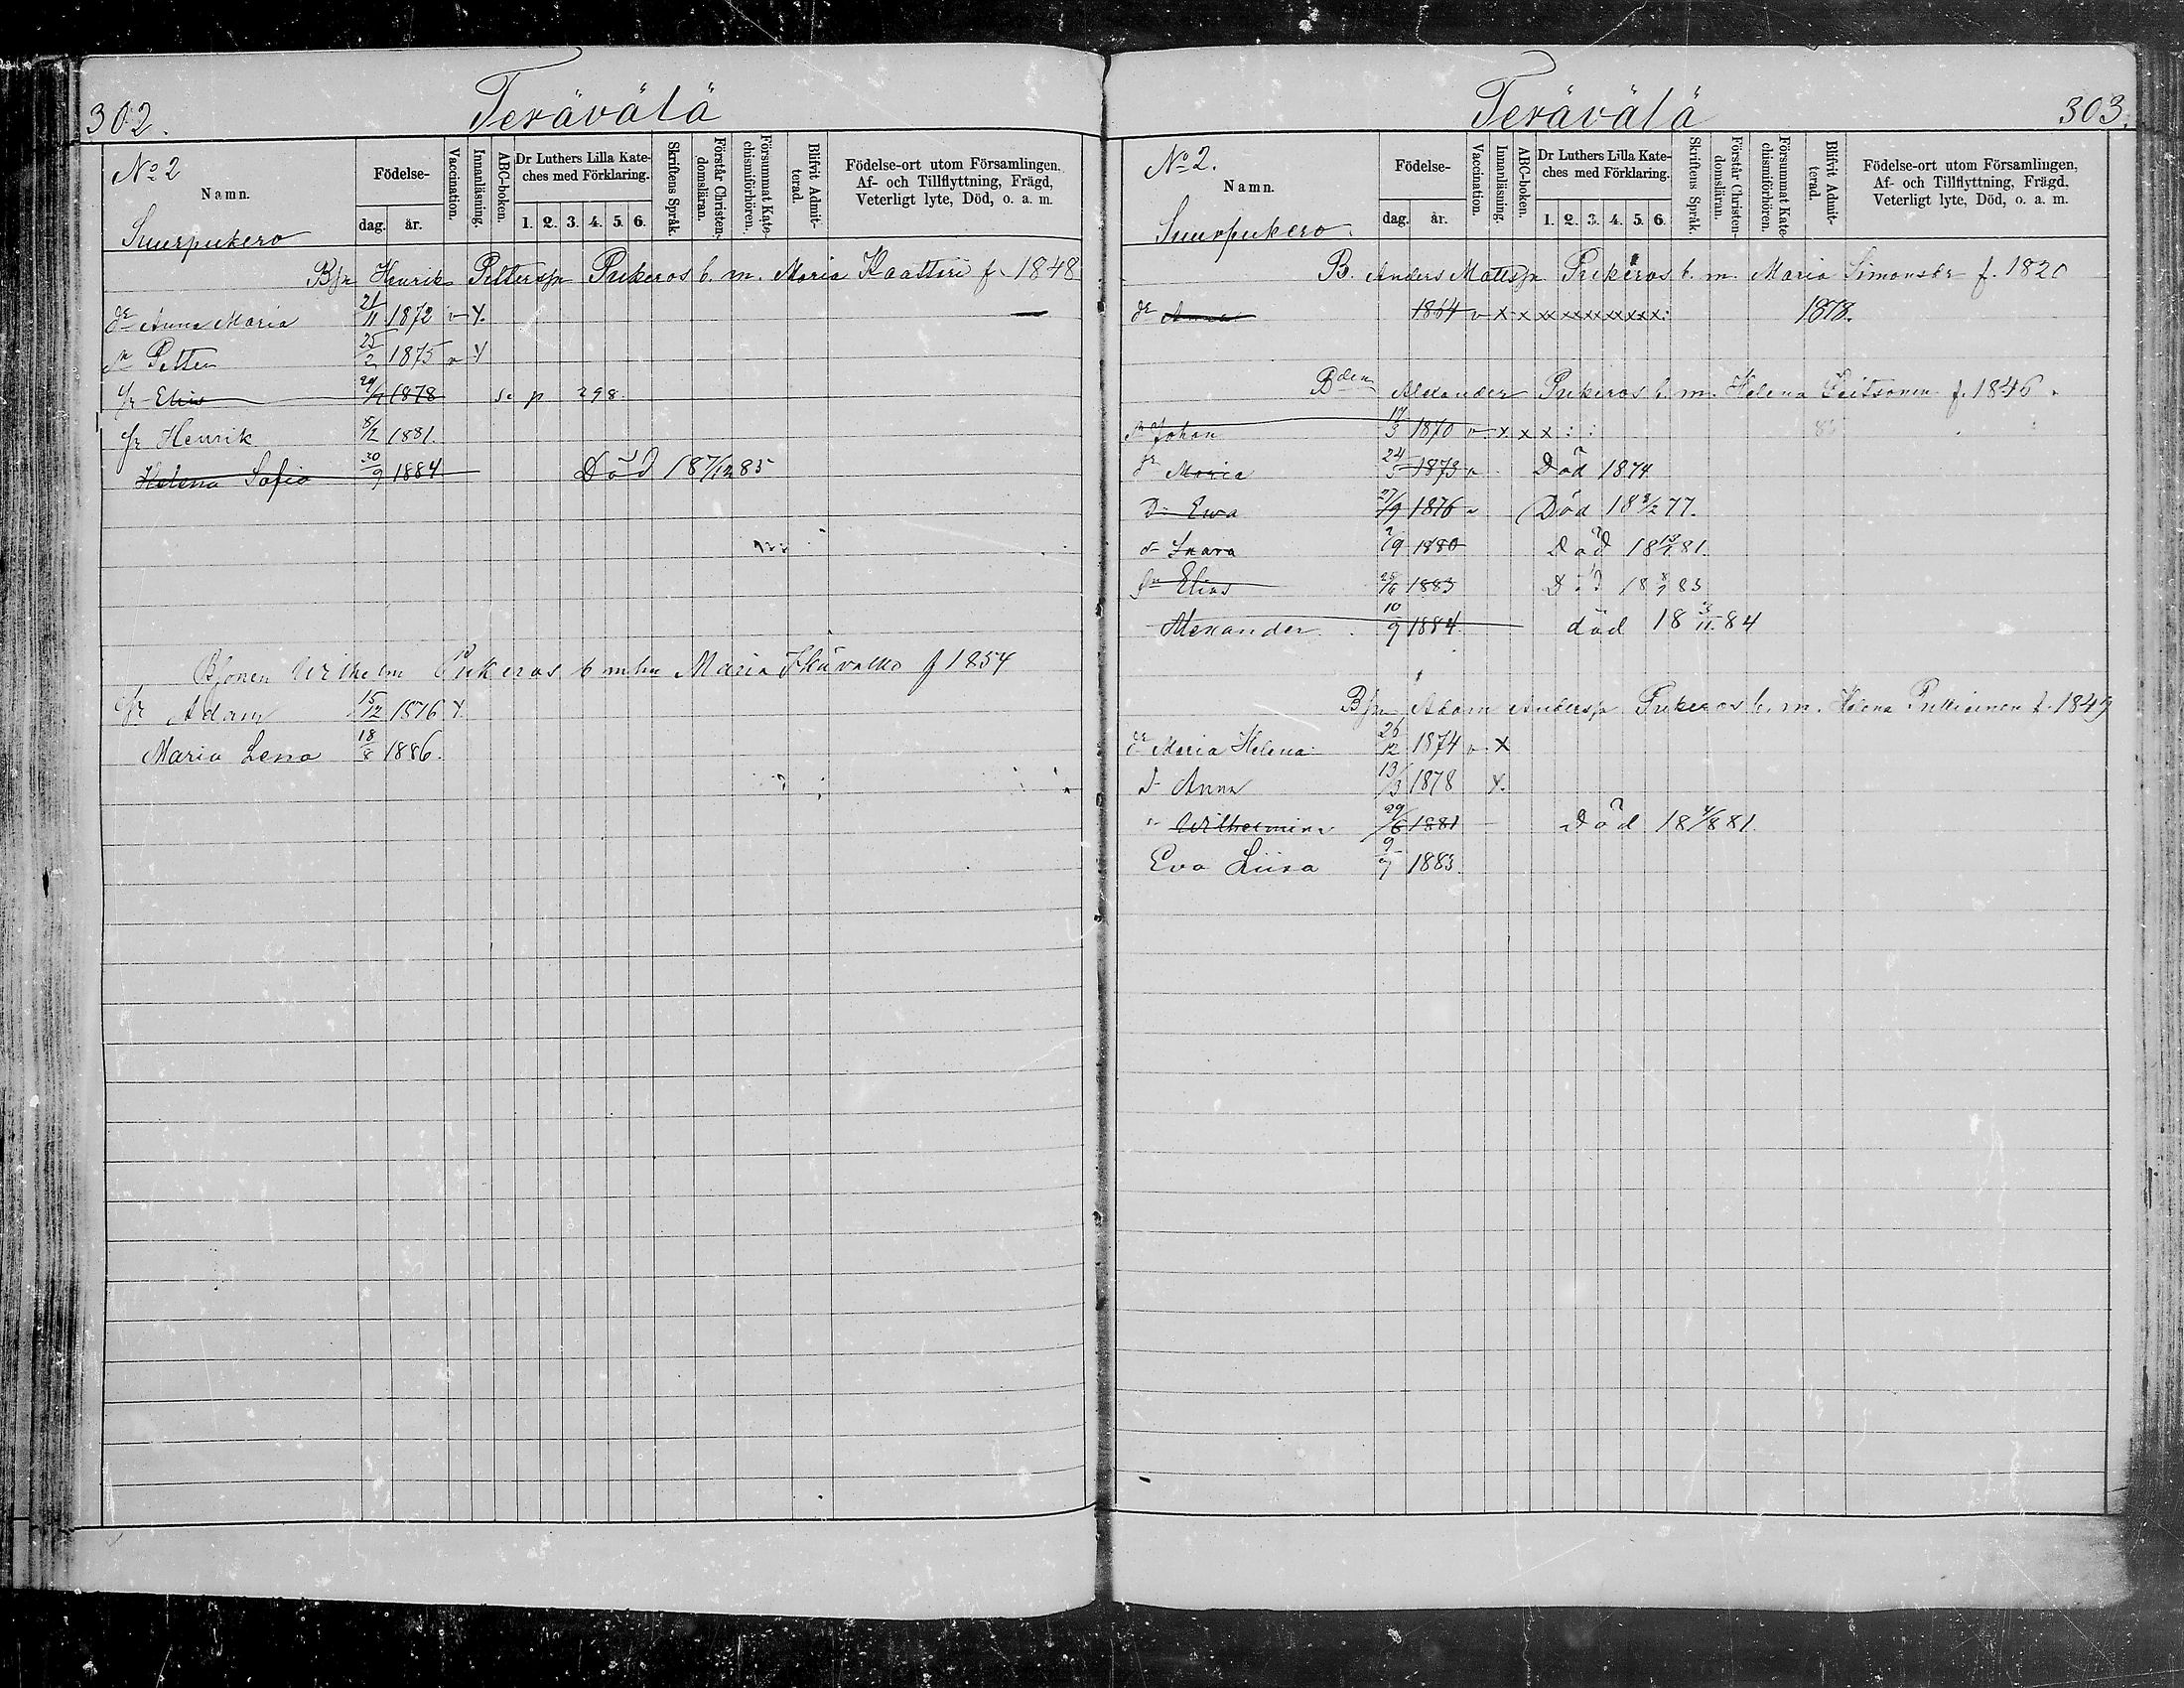 302.
Terävälä
No 2
Namn.
Suurpukero
Födelse-
dag.
år.
Vaccination.
Innanläsning.
ABC-boken.
Dr Luthers Lilla Kate-
ches med Förklaring.
1. 2. 3. 4. 5. 6.
Skriftens Språk.
Förstår Christen-
domsläran.
Försummat Kate-
chismiförhören.
Blifvit Admit-
terad.
Födelse-ort utom Församlingen,
Af- och Tillflyttning, Frägd,
Veterligt lyte, Död, o. a. m.
Bsn Henrik Pettersson Pukeros b. m. Maria Kaattiri f. 1848
dr Anna Maria 21/11 1872 v Y.
sn Petter 25/2 1875 v Y
sn Elias 1878 se p 298
sn Henrik 8/2 1881.
Helena Sofia 30/9 1884 Död 18 7/12 85
Bsonen Wilhelm Pukeros b m hu Maria f 1854
sn Adam 15/12 1876 Y.
Maria Lena 18/8 1886.
Terävälä
303.
No 2.
Namn.
Suurpukero.
Födelse-
dag.
år.
Vaccination.
Innanläsning.
ABC-boken.
Dr Luthers Lilla Kate-
ches med Förklaring.
1. 2. 3. 4. 5. 6.
Skriftens Språk.
Förstår Christen-
domsläran.
Försummat Kate-
chismiförhören.
Blifvit Admit-
terad.
Födelse-ort utom Församlingen,
Af- och Tillflyttning, Frägd,
Veterligt lyte, Död, o. a. m.
B. Anders Mattsson Pukeros b. m. Maria Simonsdr f. 1820
dr Anna 1864 v x x xx xx xx xx xx x: 1878.
Bden Alexander Pukeros b. m. Helena f. 1846.
sn Johan 17/3 1870 v x x x : :
dr Maria 24/3 1873 v Död 1874
D Ewa 27/9 1876 Död 18 3/2 77.
d 1880 Död 81
sn Elias 1883 Död 83
Alexander 10/9 1884. död 18 84
Bsn Adam Andersson Pukeros b. m. Helena Pulliainen f. 1849
dr Maria Helena 26/12 1874 v x
d Anna 13/3 1878 Y.
Wilhelmina 29/6 1881 Död 18 4/8 81.
Eva Liisa 9/7 1883.